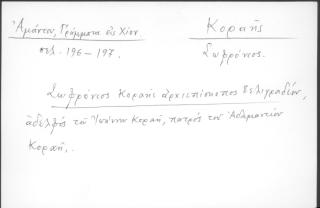 Ἀμάντου, Γράμματα εἰς Χίον
σελ. 196-197.
Κοραῆς
Σωφρόνιος.
Σωφρόνιος Κοραῆς ἀρχιεπίσκοπος Βελιγραδίου,
ἀδελφὸς τοῦ Ἰωάννου Κοραῆ, πατρὸς τοῦ Ἀδαμαντίου
Κοραῆ.